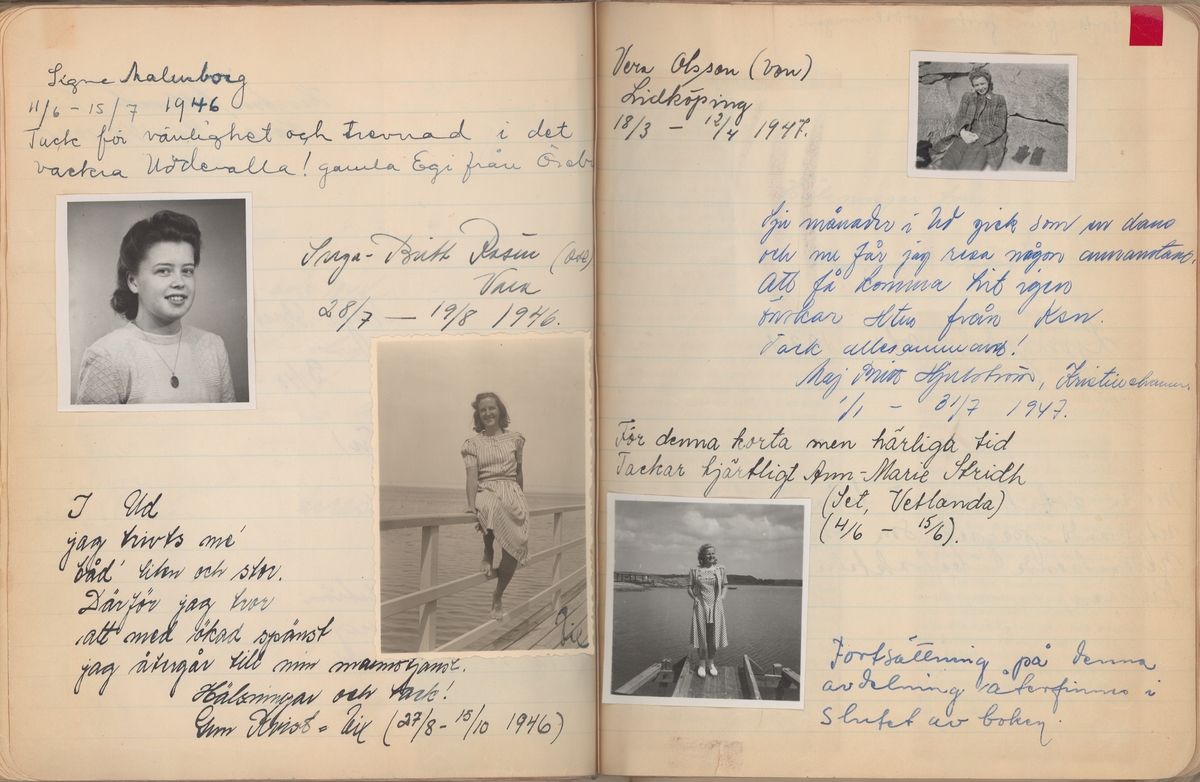 Signe Malmborg
11/6 - 15/7 1946
Tack för vänlighet och trevnad i det
vackra Uddevalla! gamla Egi från Öreb
Inga-Britt Rosén (
Vara
28/7 — 19/8 1946.
I Ud
jag trivts me'
båd' liten och stor.
Därför jag tror
att med ökad spänst
jag återgår till min mammatjänst.
Hälsningar och tack!
Gun Qvist = Qix (27/8 - 15/10 1946)
Qix
Vera Olsson (Von)
Lidköping
18/3 — 12/4 1947.
Sju månader i Ud gick som en dans
och nu får jag resa någon annanstans.
Att få komma hit igen
önskar Htm från Ksn.
Tack allesammans!
Maj Britt Hjulström, Kristinehamn
1/1 - 31/7 1947.
För denna korta men härliga tid
Tackar hjärtligt Ann-Marie Stridh
(Set, Vetlanda)
(4/6 - 15/6).
Fortsättning på denna
avdelning återfinnes i
slutet av boken.